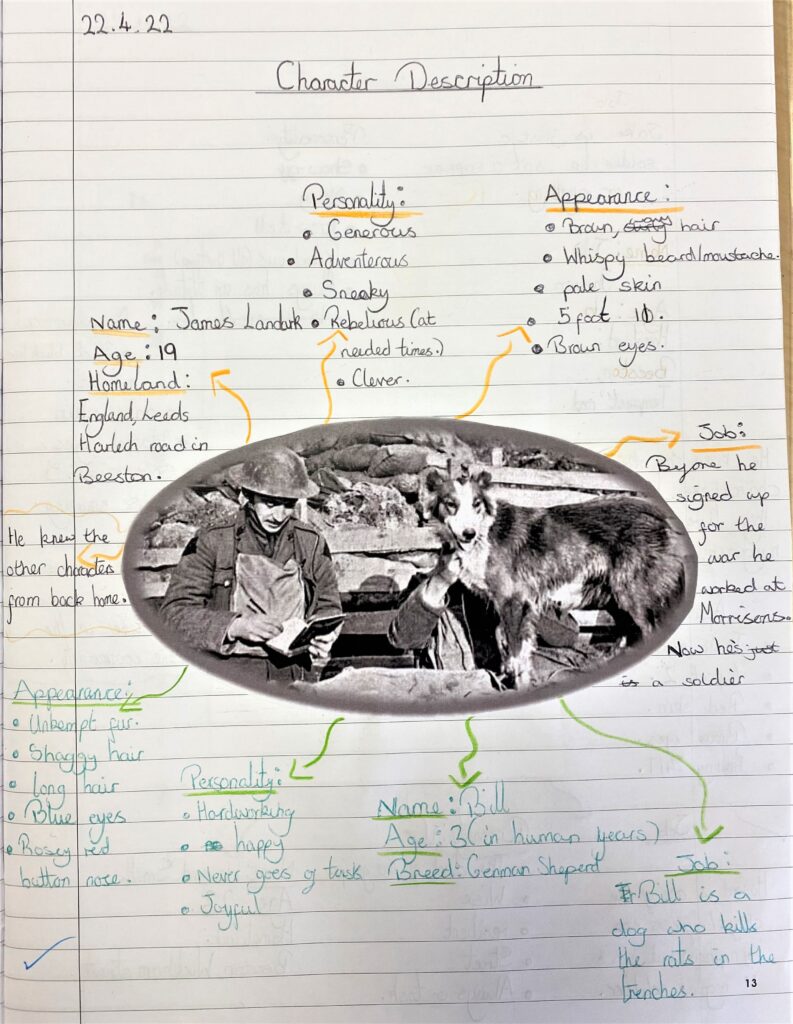 22.4.22
Character Description
Personality:
• Generous
• Adventerous
• Sneaky
• Rebelious (at
needed times.)
• Clever.
Appearance:
• Brown, hair
• Whispy beard/moustache.
• pale skin
• 5 foot 11.
• Brown eyes.
Name: James Landark
Age: 19
Homeland:
England, Leeds
Harlech road in
Beeston.
He knew the
other characters
from back home.
Job:
Before he
signed up
for the
war he
worked at
Morrisons.
Now he's just
is a soldier
Appearance:
• Unkempt fur.
• Shaggy hair
• long hair
• Blue eyes
• Rosey red
button nose.
Personality:
• Hardworking
• happy
• Never goes of task
• Joyful
Name: Bill
Age: 3 (in human years)
Breed: German Sheperd
Job:
Bill is a
dog who kills
the rats in the
trenches.
13